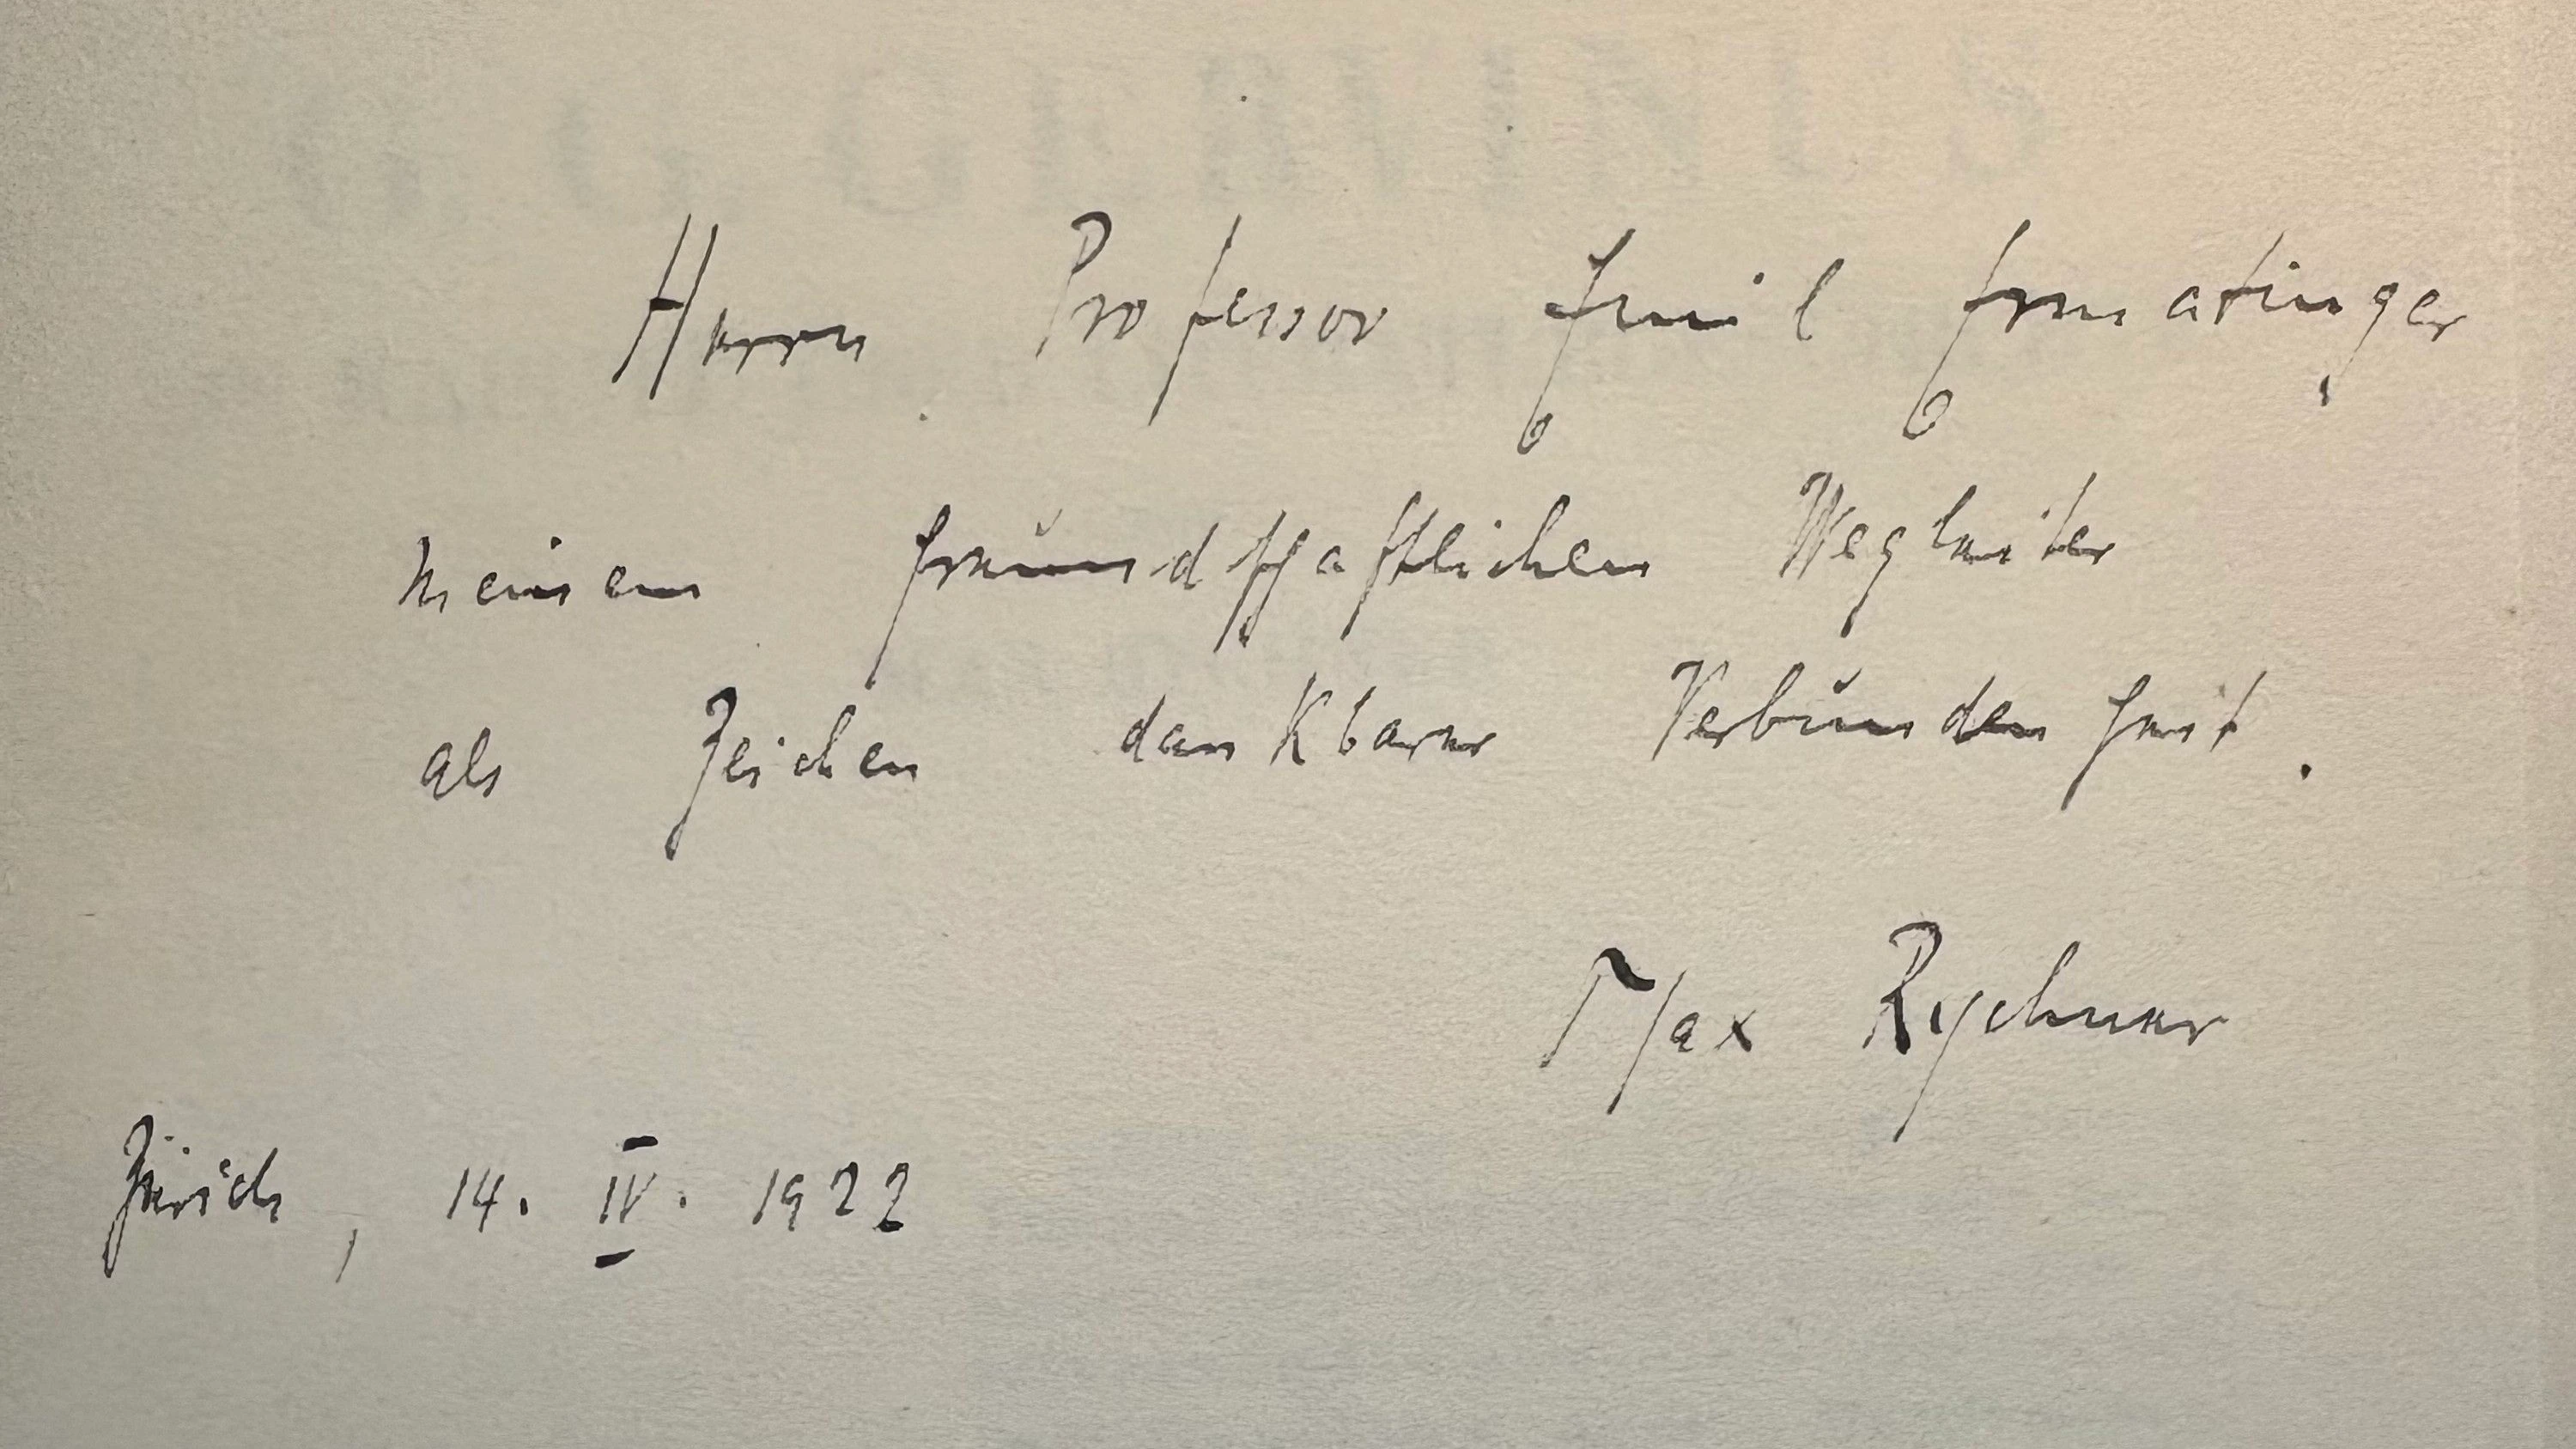 G. G. GERVINUS
Herrn Professor Emil Ermatinger
meinem freundschaftlichen Wegleiter
als Zeichen dankbarer Verbundenheit.
Max Rychner
Zürich, 14. IV. 1922